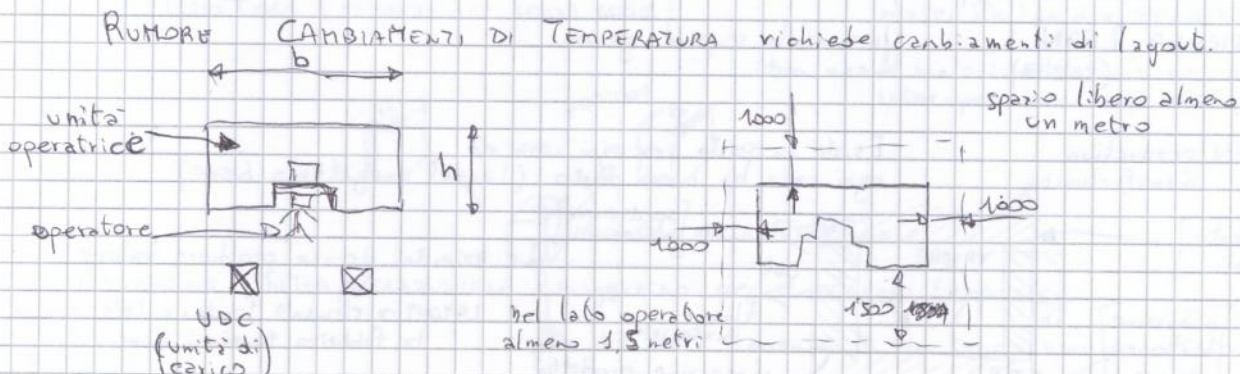 RUMORE CAMBIAMENTI DI TEMPERATURA richiede cambiamenti di layout.
b
unità
operatrice
h
operatore
UDC
(unità di
carico)
1000
spazio libero almeno
un metro
1000
1000
nel lato operatore
almeno 1,5 metri
1500